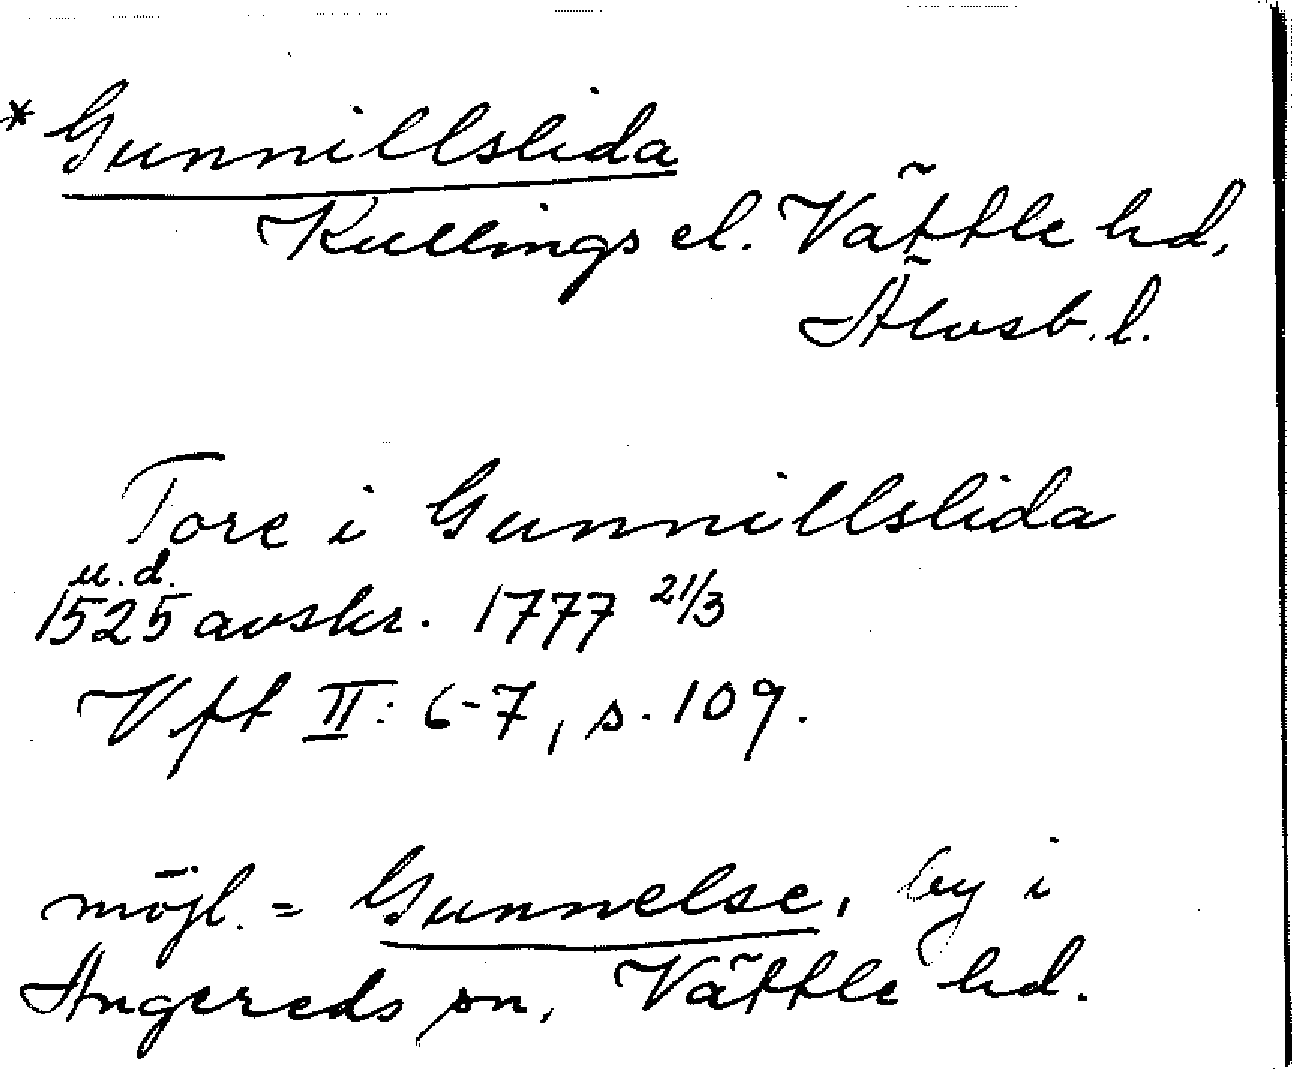 * Gunnillslida
Kullings el. Vättle hd,
Älvsb. l.
Tore i Gunnillslida
u.d.
1525 avskr. 1777 21/3
Vft II: 6-7, s. 109.
möjl. = Gunnelse, by i
Angereds sn, Vättle hd.